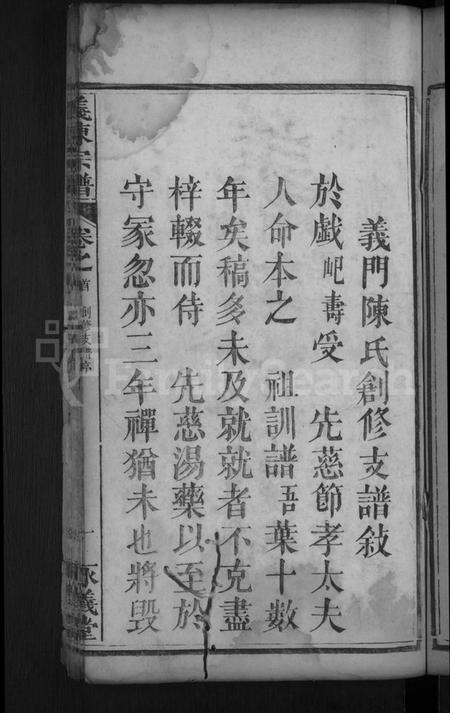 義門陳氏創修支譜敍
於戲屺壽受 先慈節孝太夫
人命本之 祖訓譜吾葉十數
年矣稿多未及就就者不克盡
梓輟而侍 先慈湯藥以至於
守冢忽亦三年禫猶未也將毀
義陳宗譜
卷之首
創修支譜序
一
義堂
FamilySearch